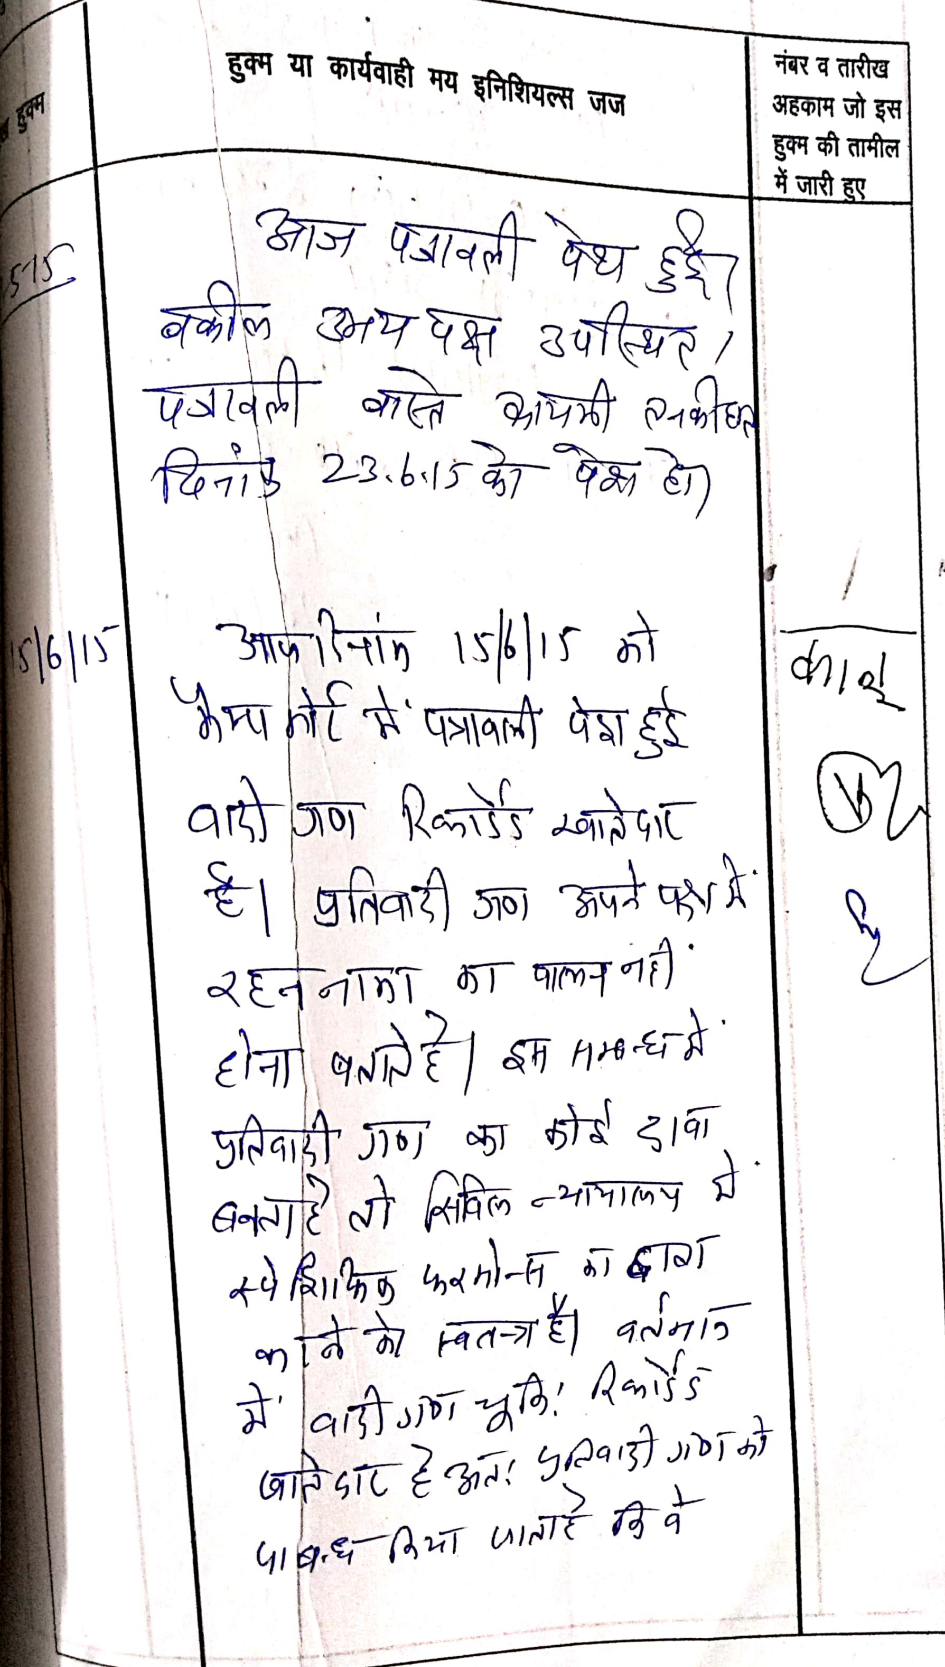 हुक्म
हुक्म या कार्यवाही मय इनिशियल्स जज
नंबर व तारीख
अहकाम जो इस
हुक्म की तामील
में जारी हुए
आज पत्रावली पेश हुई।
वकील उभय पक्ष उपस्थित।
पत्रावली वास्ते कायमी तनकीहात
दिनांक 23.6.15 को पेश हो।
15/6/15
आज दिनांक 15/6/15 को
कैम्प कोर्ट में पत्रावली पेश हुई
वादी गण रिकॉर्डेड खातेदार
है। प्रतिवादी गण अपने पक्ष में
रहननामा का पालन नही
होना बताते है। इस सम्बन्ध में
प्रतिवादी गण का कोई दावा
बनता है तो सिविल न्यायालय में
स्पेशिफिक फरमोन्स का दावा
करने को स्वतन्त्र है। वर्तमान
में वादी गण चूकि रिकॉर्डेड
खातेदार है अतः प्रतिवादी गण को
पाबन्ध किया जाता है कि वे